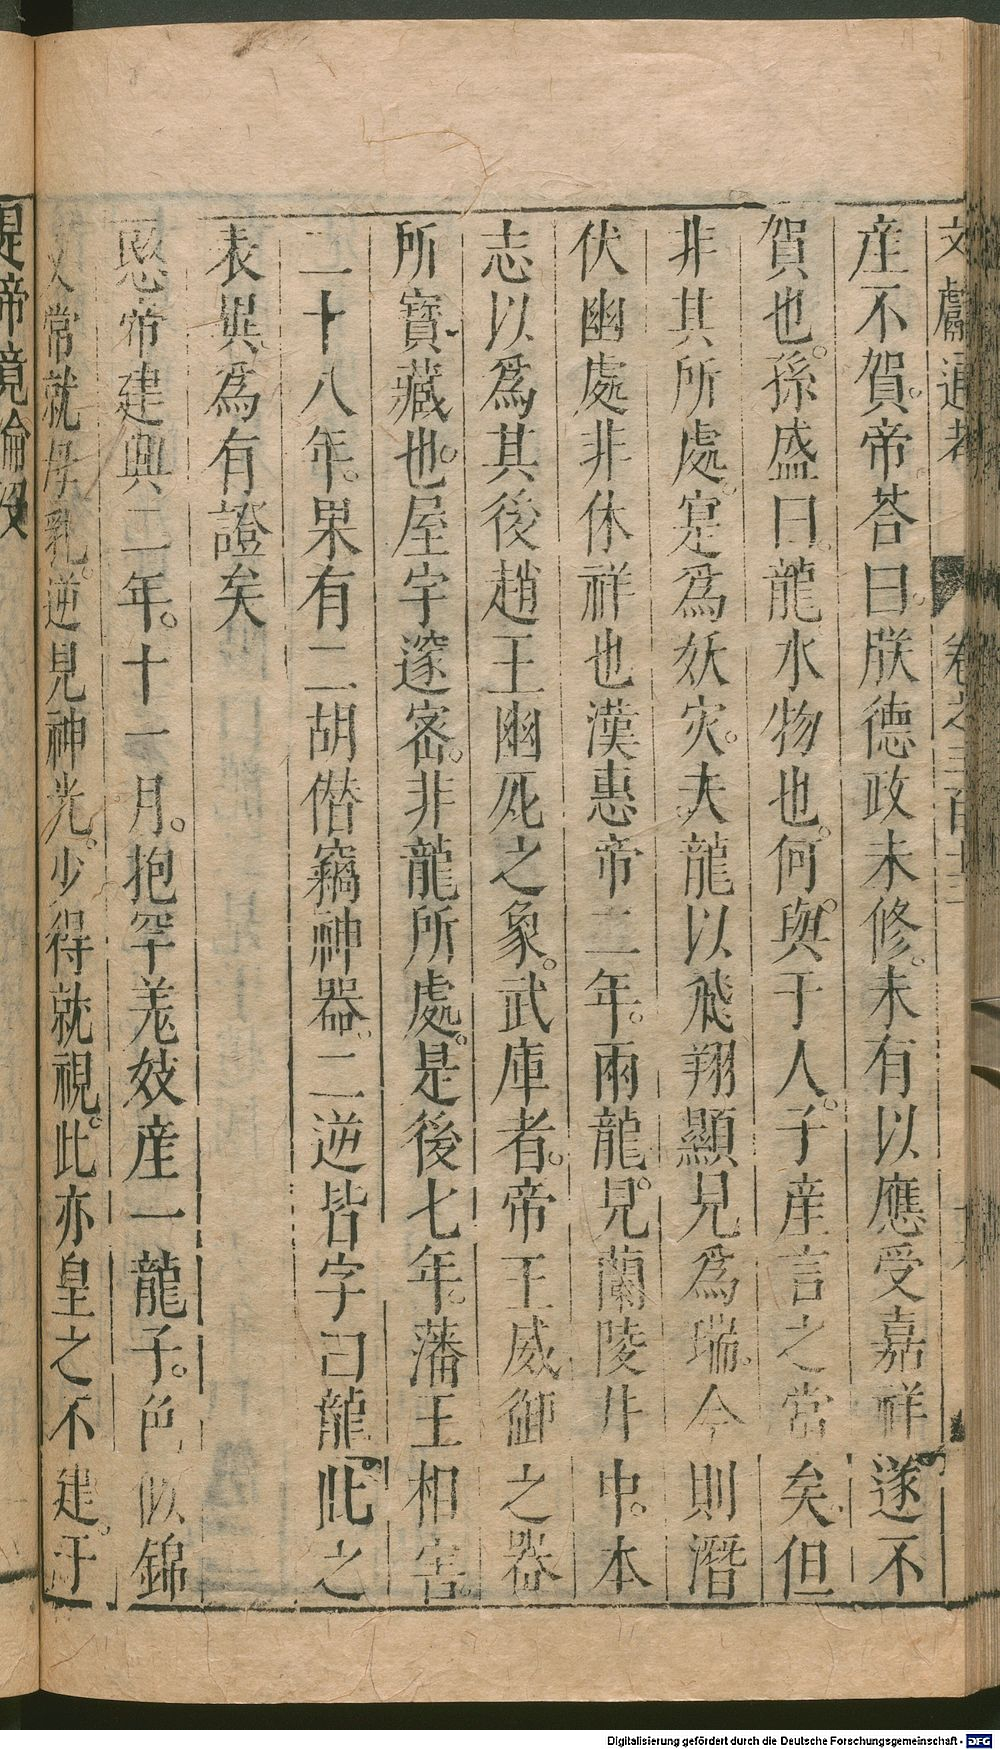 文獻通考 卷之三百十三
產不賀。帝荅曰。朕德政未修。未有以應受嘉祥遂不
賀也。孫盛曰。龍水物也。何與于人。子產言之當矣。但
非其所處。寔爲妖灾。夫龍以飛翔顯見爲瑞。今則潛
伏幽處非休祥也漢惠帝二年。兩龍見。蘭陵井中。本
志以爲其後趙王幽死之象。武庫者。帝王威御之器
所寶藏也。屋宇邃密。非龍所處。是後七年。藩王相害。
二十八年。果有二胡僭竊神器。二逆皆字曰龍此之
表異爲有證矣
愍帝建興二年。十一月。抱罕羌妓產一龍子。色似錦
文常就母乳。逆見神光。少得就視。此亦皇之不建。于
是帝竟淪沒
Digitalisierung gefördert durch die Deutsche Forschungsgemeinschaft - DFG